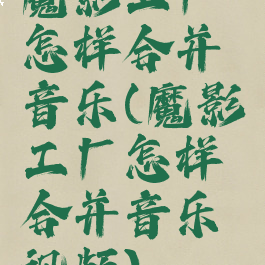 魔影工厂
怎样合并
音乐(魔影
工厂怎样
合并音乐
视频)